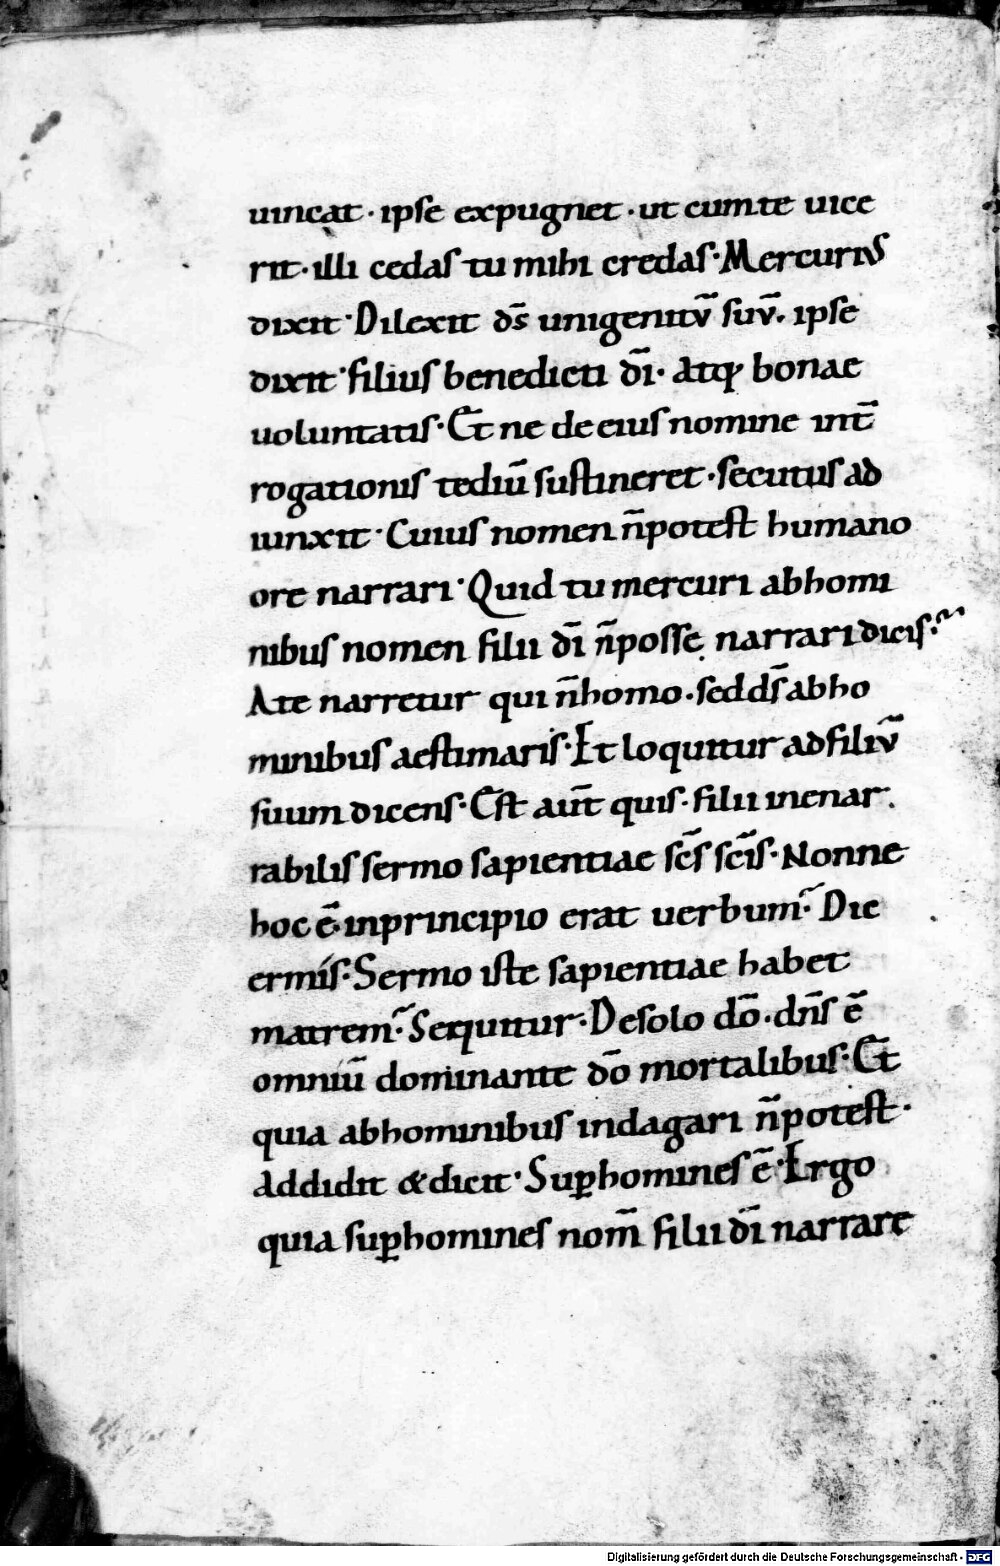 uincat · ipse expugnet · ut cum te uice
rit · illi cedas tu mihi credas · Mercurius
dixit · Dilexit ds̄ unigenitū suū . ipse
dixit · filius benedicti dī · atq; bonae
uoluntatis · Et ne de eius nomine int̄
rogationis tediū sustineret · secutus ad
iunxit · Cuius nomen n̄ potest humano
ore narrari · Quid tu mercuri ab homi
nibus nomen filii dī n̄ posse narrari dicis ·
A te narretur qui n̄ homo . sed ds̄ ab ho
minibus aestimaris · Et loquitur ad filiū
suum dicens · Est aut̄ quis · filii inenar
rabilis sermo sapientiae sc̄s sc̄is · Nonne
hoc ē · in principio erat uerbum · Dic
ermis · Sermo iste sapientiae habet
matrem · Sequitur · De solo dō . dn̄s ē
omniū dominante dō mortalibus · Et
quia ab hominibus indagari n̄ potest ·
addidit & dicit · Sup̱ homines ē · Ergo
quia sup̱ homines nom̄ filii dī narrare
Digitalisierung gefördert durch die Deutsche Forschungsgemeinschaft - DFG